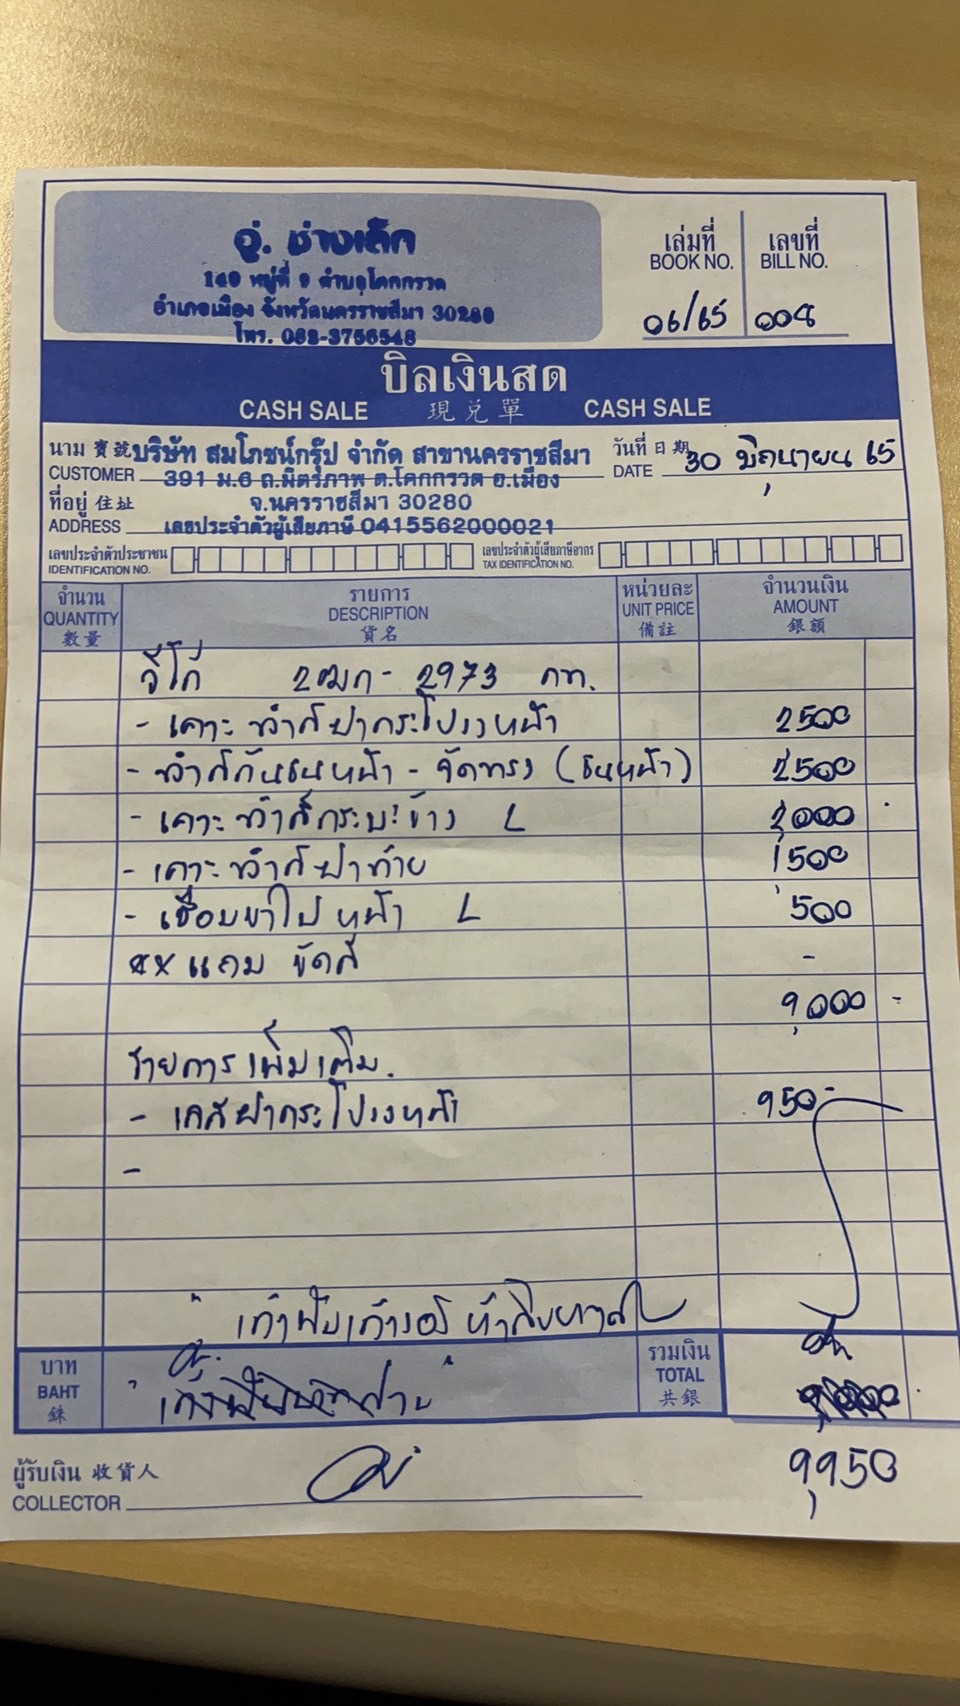 อู่. ช่างเล็ก
149 หมู่ที่ 9 ตำบลโคกกรวด
อำเภอเมือง จังหวัดนครราชสีมา 30280
โทร. 083-3756548
เล่มที่ เลขที่
BOOK NO. BILL NO.
06/65 008
บิลเงินสด
CASH SALE 現兌單 CASH SALE
นาม 賓號 บริษัท สมโภชน์กรุ๊ป จำกัด สาขานครราชสีมา วันที่ 日期 30 มิถุนายน 65
CUSTOMER 391 ม.6 ถ.มิตรภาพ ต.โคกกรวด อ.เมือง DATE
ที่อยู่ 住址 จ.นครราชสีมา 30280
ADDRESS เลขประจำตัวผู้เสียภาษี 0415562000021
เลขประจำตัวประชาชน เลขประจำตัวผู้เสียภาษีอากร
IDENTIFICATION NO. TAX IDENTIFICATION NO.
จำนวน รายการ หน่วยละ จำนวนเงิน
QUANTITY DESCRIPTION UNIT PRICE AMOUNT
數量 貨名 備註 銀額
วีโก่ 2ฒก - 2973 กท.
- เคาะทำสีฝากระโปรงหน้า 2500
- ทำสีกันชนหน้า - จัดทรง (ชนหน้า) 2500
- เคาะทำสีกระบะข้าง L 2,000 -
- เคาะทำสีฝาท้าย 1,500
- เชื่อมขาไฟหน้า L 500
** แถม ขัดสี -
9,000 -
รายการเพิ่มเติม.
- เคสีฝากระโปรงหน้า 950-
-
" เก้าพันเก้าร้อยห้าสิบบาท
บาท รวมเงิน
BAHT TOTAL
銖 共銀
ผู้รับเงิน 收貨人 9,950
COLLECTOR